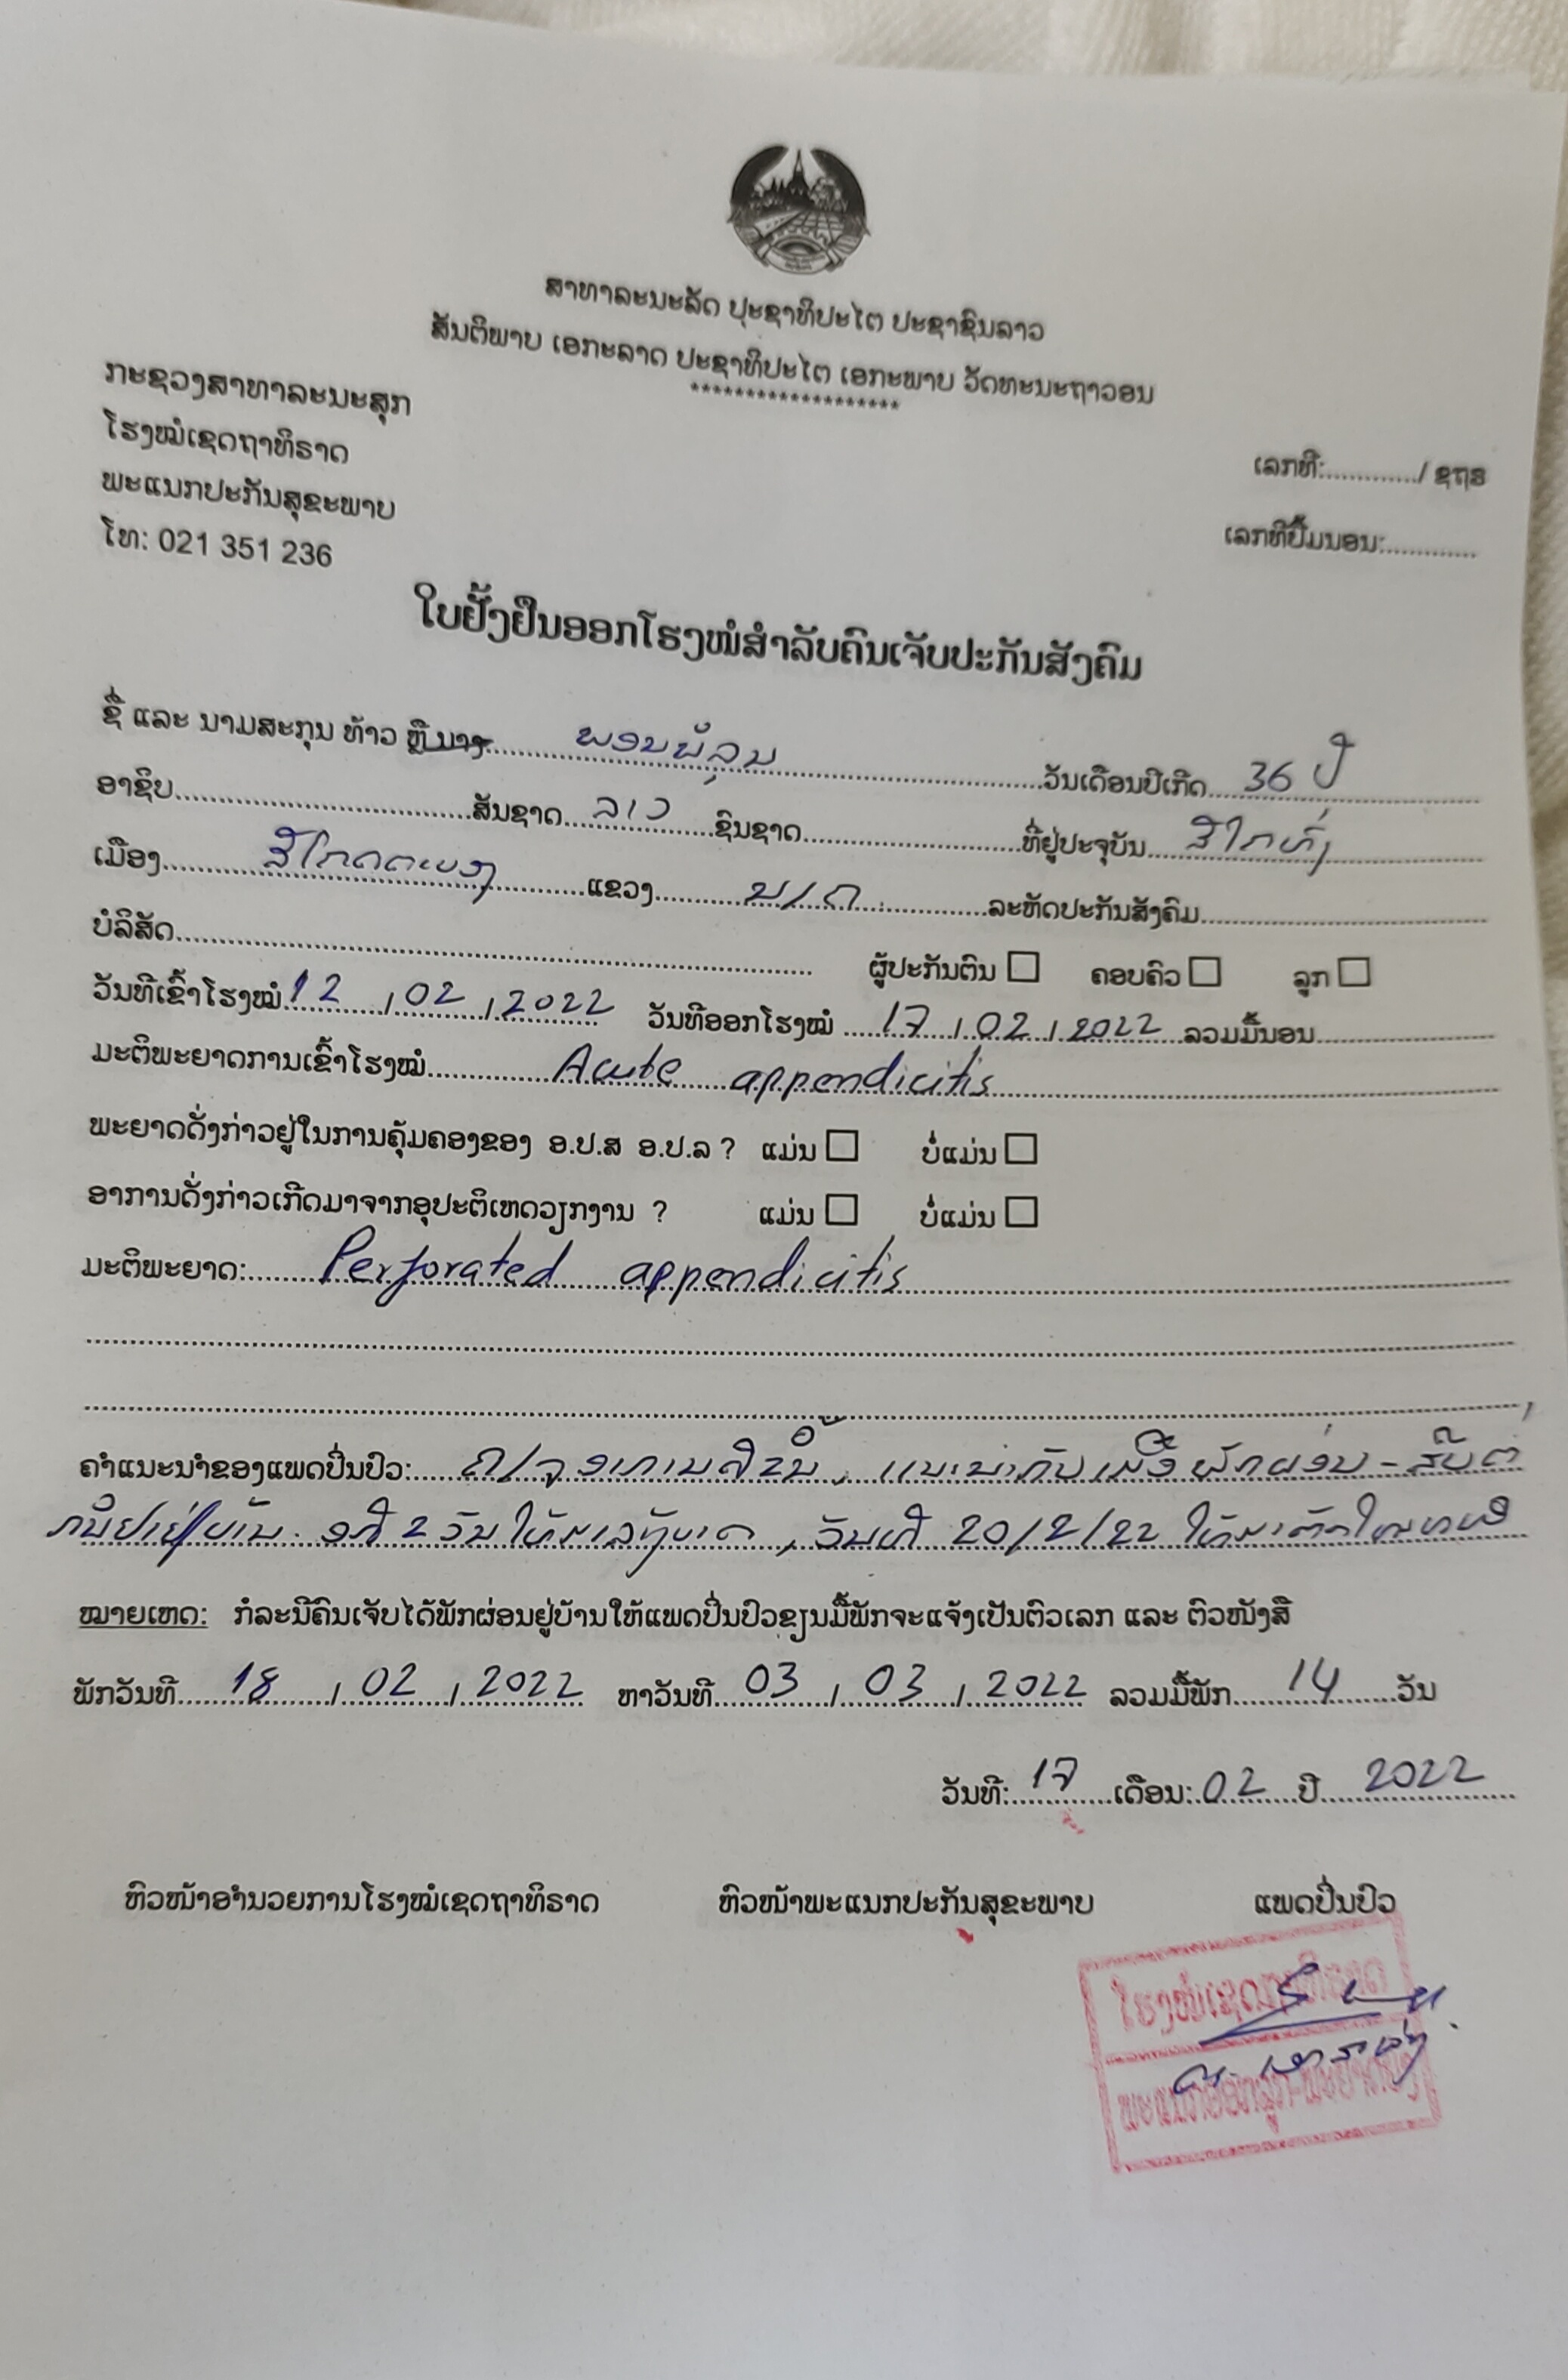 ສາທາລະນະລັດ ປະຊາທິປະໄຕ ປະຊາຊົນລາວ
ສັນຕິພາບ ເອກະລາດ ປະຊາທິປະໄຕ ເອກະພາບ ວັດທະນະຖາວອນ
*******************
ກະຊວງສາທາລະນະສຸກ
ໂຮງໝໍເຊດຖາທິຣາດ
ພະແນກປະກັນສຸຂະພາບ
ໂທ: 021 351 236
ເລກທີ:............./ ຊຖຣ
ເລກທີປຶ້ມນອນ:.............
ໃບຢັ້ງຢືນອອກໂຮງໝໍສຳລັບຄົນເຈັບປະກັນສັງຄົມ
ຊື່ ແລະ ນາມສະກຸນ ທ້າວ ຫຼື ນາງ ພອນພິລຸນ ວັນເດືອນປີເກີດ 36 ປີ
ອາຊິບ ສັນຊາດ ລາວ ຊົນຊາດ ທີ່ຢູ່ປະຈຸບັນ ສີໄກທົ່ງ
ເມືອງ ສີໂຄດຕະບອງ ແຂວງ ນ/ຄ ລະຫັດປະກັນສັງຄົມ
ບໍລິສັດ ຜູ້ປະກັນຕົນ ຄອບຄົວ ລູກ
ວັນທີເຂົ້າໂຮງໝໍ 12 / 02 / 2022 ວັນທີອອກໂຮງໝໍ 17 / 02 / 2022 ລວມມື້ນອນ
ມະຕິພະຍາດການເຂົ້າໂຮງໝໍ Acute appendicitis
ພະຍາດດັ່ງກ່າວຢູ່ໃນການຄຸ້ມຄອງຂອງ ອ.ປ.ສ ອ.ປ.ລ ? ແມ່ນ ບໍ່ແມ່ນ
ອາການດັ່ງກ່າວເກີດມາຈາກອຸປະຕິເຫດວຽກງານ ? ແມ່ນ ບໍ່ແມ່ນ
ມະຕິພະຍາດ: Perforated appendicitis
ຄຳແນະນຳຂອງແພດປິ່ນປົວ: ພັກຜ່ອນ - ສືບຕໍ່
2 ວັນ ໃຫ້ , ວັນທີ 20/2/22 ໃຫ້
ໝາຍເຫດ: ກໍລະນີຄົນເຈັບໄດ້ພັກຜ່ອນຢູ່ບ້ານໃຫ້ແພດປິ່ນປົວຂຽນມື້ພັກຈະແຈ້ງເປັນຕົວເລກ ແລະ ຕົວໜັງສື
ພັກວັນທີ 18 / 02 / 2022 ຫາວັນທີ 03 / 03 / 2022 ລວມມື້ພັກ 14 ວັນ
ວັນທີ: 17 ເດືອນ: 02 ປີ 2022
ຫົວໜ້າອຳນວຍການໂຮງໝໍເຊດຖາທິຣາດ ຫົວໜ້າພະແນກປະກັນສຸຂະພາບ ແພດປິ່ນປົວ
ໂຮງໝໍເຊດຖາທິຣາດ